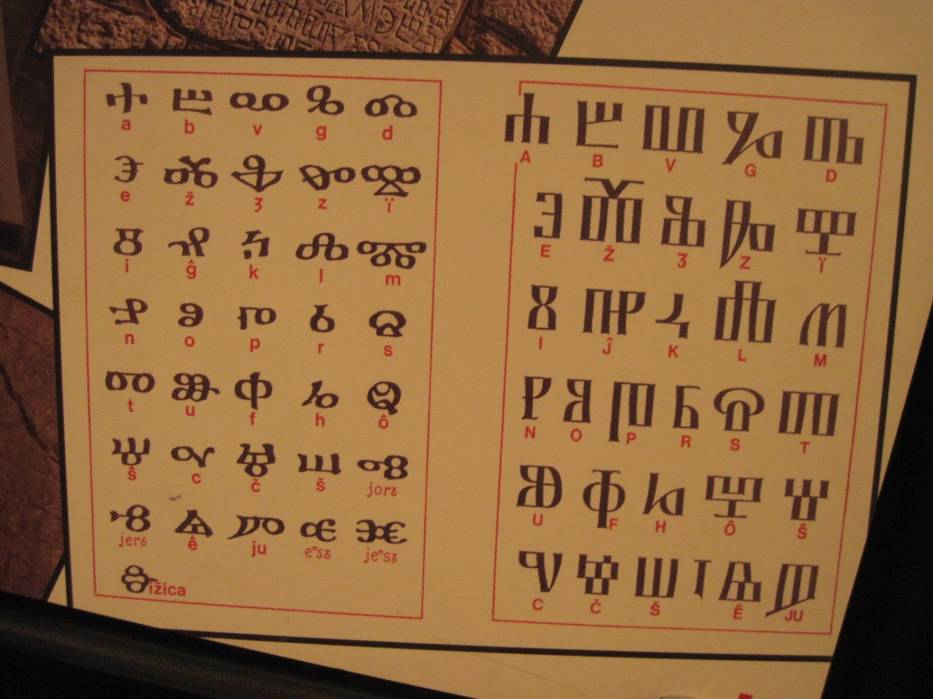 Ⰰ Ⰱ Ⰲ Ⰳ Ⰴ
a b v g d
Ⰵ Ⰶ Ⰷ Ⰸ Ⰹ
e ž ʒ z ï
Ⰻ Ⰼ Ⰽ Ⰾ Ⰿ
i ĝ k l m
Ⱀ Ⱁ Ⱂ Ⱃ Ⱄ
n o p r s
Ⱅ Ⱆ Ⱇ Ⱈ Ⱉ
t u f h ô
Ⱋ Ⱌ Ⱍ Ⱎ Ⱏ
ŝ c č š jorъ
Ⱐ Ⱑ Ⱓ Ⱔ Ⱗ
jerъ ê ju eⁿsъ jeⁿsъ
Ⱛ ižica
Ⰰ Ⰱ Ⰲ Ⰳ Ⰴ
A B V G D
Ⰵ Ⰶ Ⰷ Ⰸ Ⰹ
E Ž Ʒ Z Ï
Ⰻ Ⰼ Ⰽ Ⰾ Ⰿ
I Ĵ K L M
Ⱀ Ⱁ Ⱂ Ⱃ Ⱄ Ⱅ
N O P R S T
Ⱆ Ⱇ Ⱈ Ⱉ Ⱋ
U F H Ô Ŝ
Ⱌ Ⱍ Ⱎ Ⱜ Ⱑ Ⱓ
C Č Š Ê JU